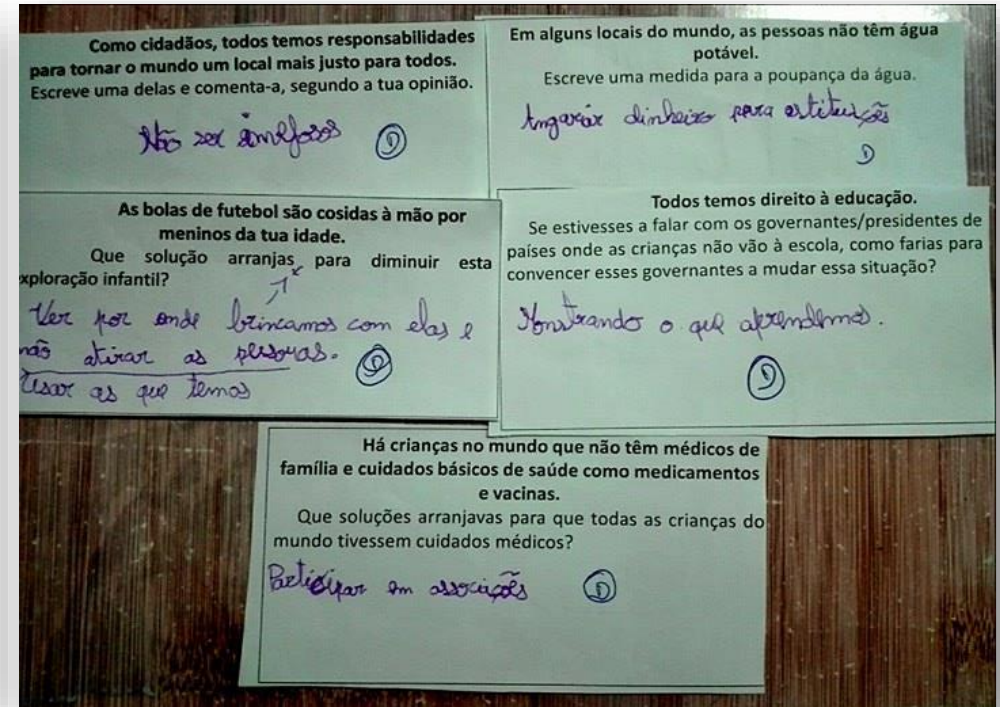 Como cidadãos, todos temos responsabilidades
para tornar o mundo um local mais justo para todos.
Escreve uma delas e comenta-a, segundo a tua opinião.
Não ser
D
Em alguns locais do mundo, as pessoas não têm água
potável.
Escreve uma medida para a poupança da água.
Angariar dinheiro para estituições
D
As bolas de futebol são cosidas à mão por
meninos da tua idade.
Que solução arranjas para diminuir esta
xploração infantil?
Ver por onde brincamos com elas e
não atirar as pessouas.
Usar as que temos
D
Todos temos direito à educação.
Se estivesses a falar com os governantes/presidentes de
países onde as crianças não vão à escola, como farias para
convencer esses governantes a mudar essa situação?
Monstrando o que aprendemos.
D
Há crianças no mundo que não têm médicos de
família e cuidados básicos de saúde como medicamentos
e vacinas.
Que soluções arranjavas para que todas as crianças do
mundo tivessem cuidados médicos?
Participar em associções
D